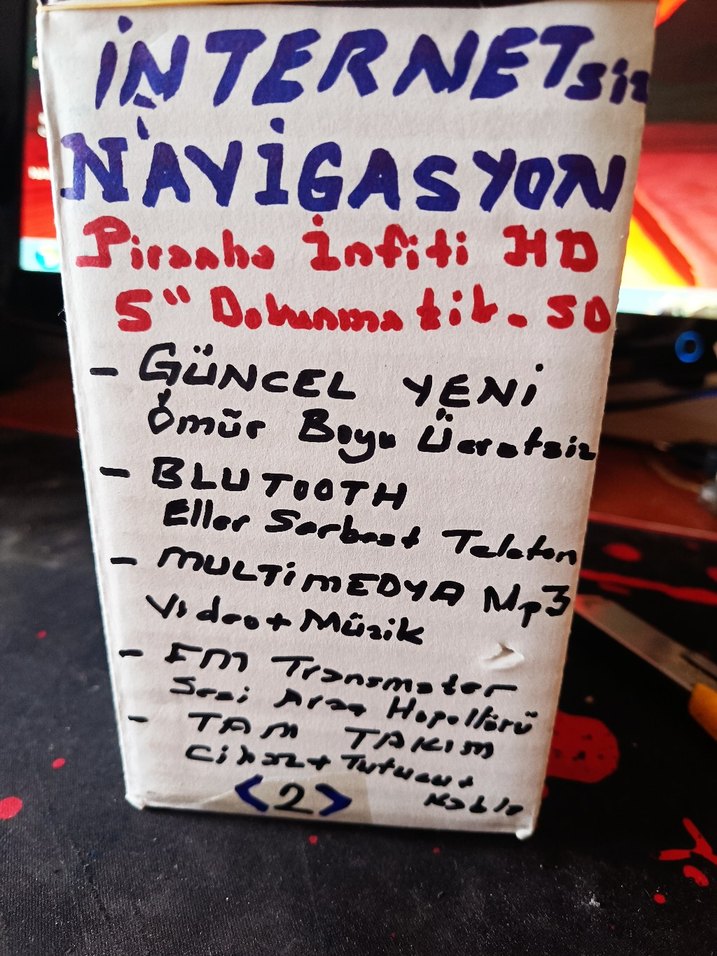 İNTERNETsiz
NAVİGASYON
Piranha İnfiti HD
5" Dokunmatik - SD
- GÜNCEL YENİ
Ömür Boyu Ücretsiz
- BLUTOOTH
Eller Serbest Telefon
- MULTİMEDYA Mp3
Video + Müzik
- FM Transmater
Sesi Araç Hopollörü
- TAM TAKIM
Cihaz + Tutucu +
Kablo
<2>